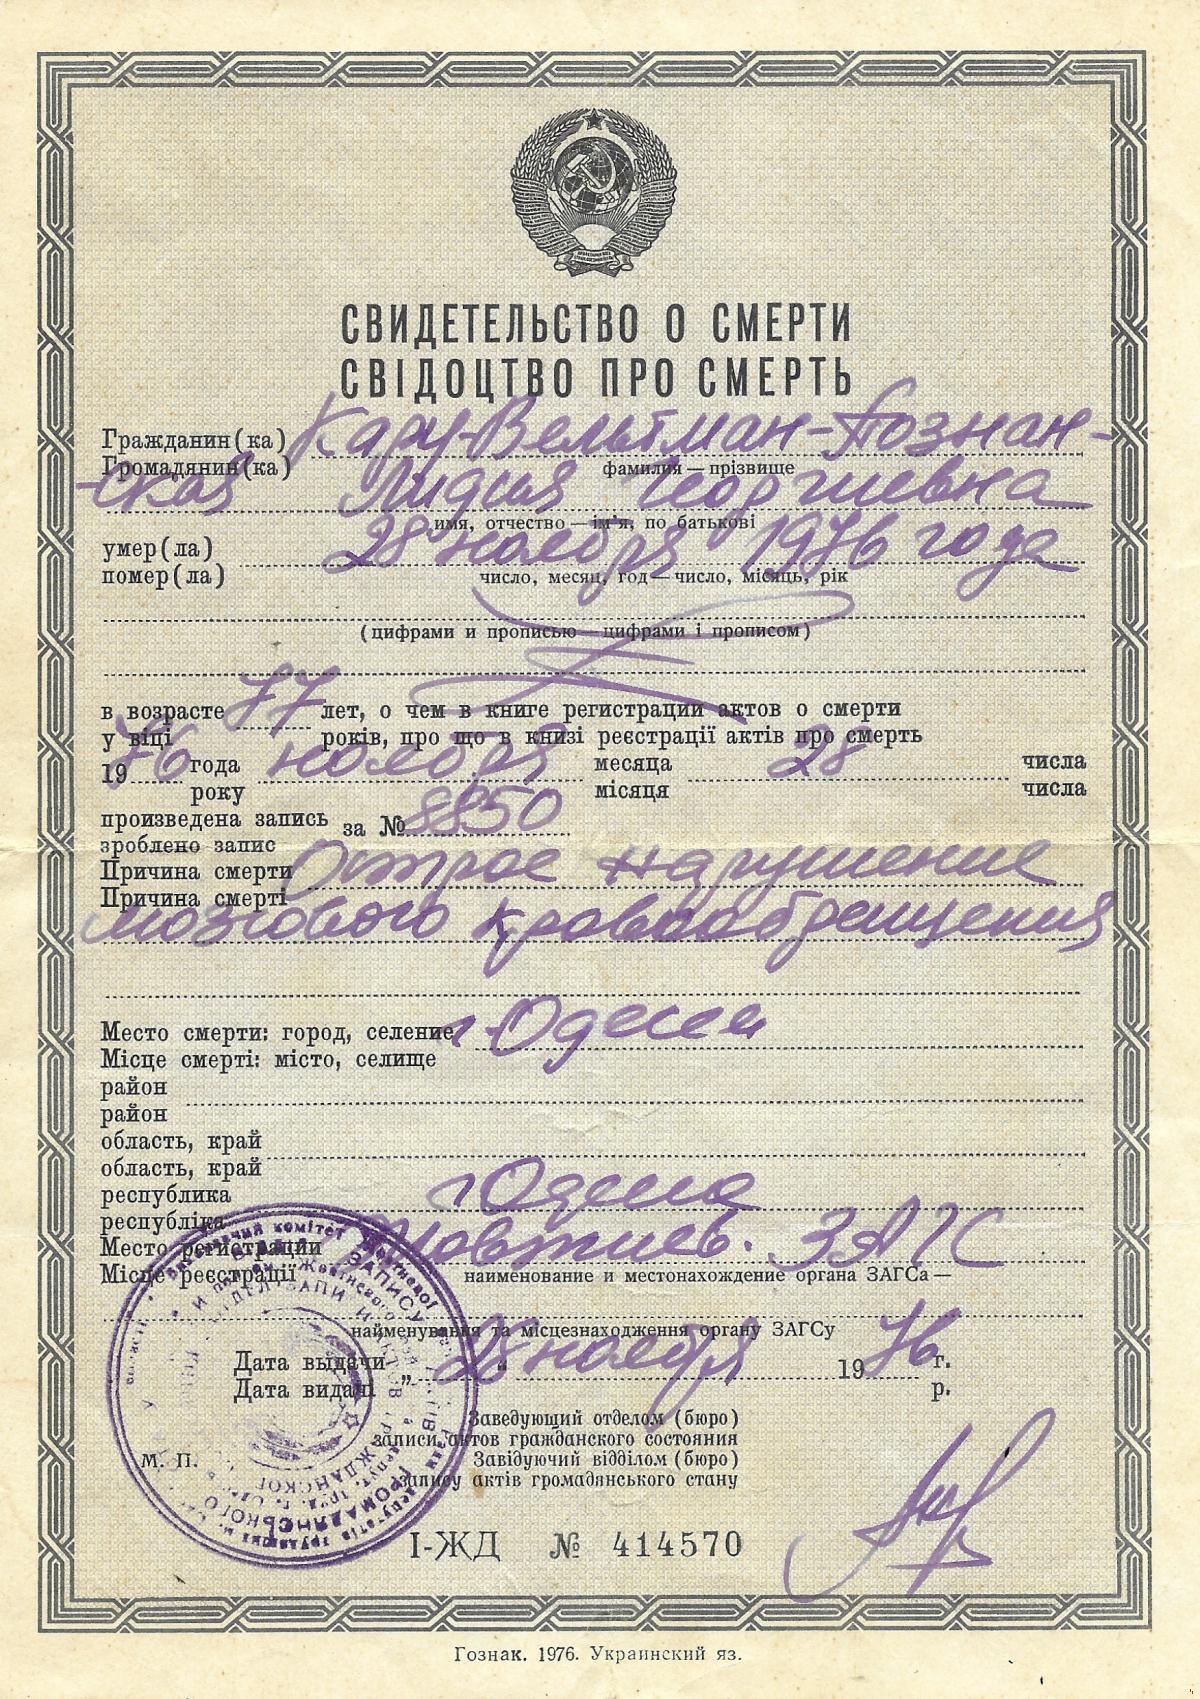 СВИДЕТЕЛЬСТВО О СМЕРТИ
СВІДОЦТВО ПРО СМЕРТЬ
Гражданин(ка) Кару-Вельтман-Познан-
Громадянин(ка) фамилия — прізвище
-ская Лидия Георгиевна
имя, отчество — ім'я, по батькові
умер(ла) 28 ноября 1976 года
помер(ла) число, месяц, год — число, місяць, рік
(цифрами и прописью — цифрами і прописом)
в возрасте 77 лет, о чем в книге регистрации актов о смерти
у віці років, про що в книзі реєстрації актів про смерть
19 76 года ноября месяца 28 числа
року місяця числа
произведена запись за № 8850
зроблено запис
Причина смерти Острое нарушение
Причина смерті
мозгового кровообращения
Место смерти: город, селение г. Одесса
Місце смерті: місто, селище
район
район
область, край
область, край
республика г Одесса
республіка
Место регистрации Жовтнев. ЗАГС
Місце реєстрації наименование и местонахождение органа ЗАГСа —
найменування та місцезнаходження органу ЗАГСу
Дата выдачи „28" ноября 1976 г.
Дата видачі р.
Заведующий отделом (бюро)
записи актов гражданского состояния
М. П. Завідуючий відділом (бюро)
запису актів громадянського стану
I-ЖД № 414570
Гознак. 1976. Украинский яз.